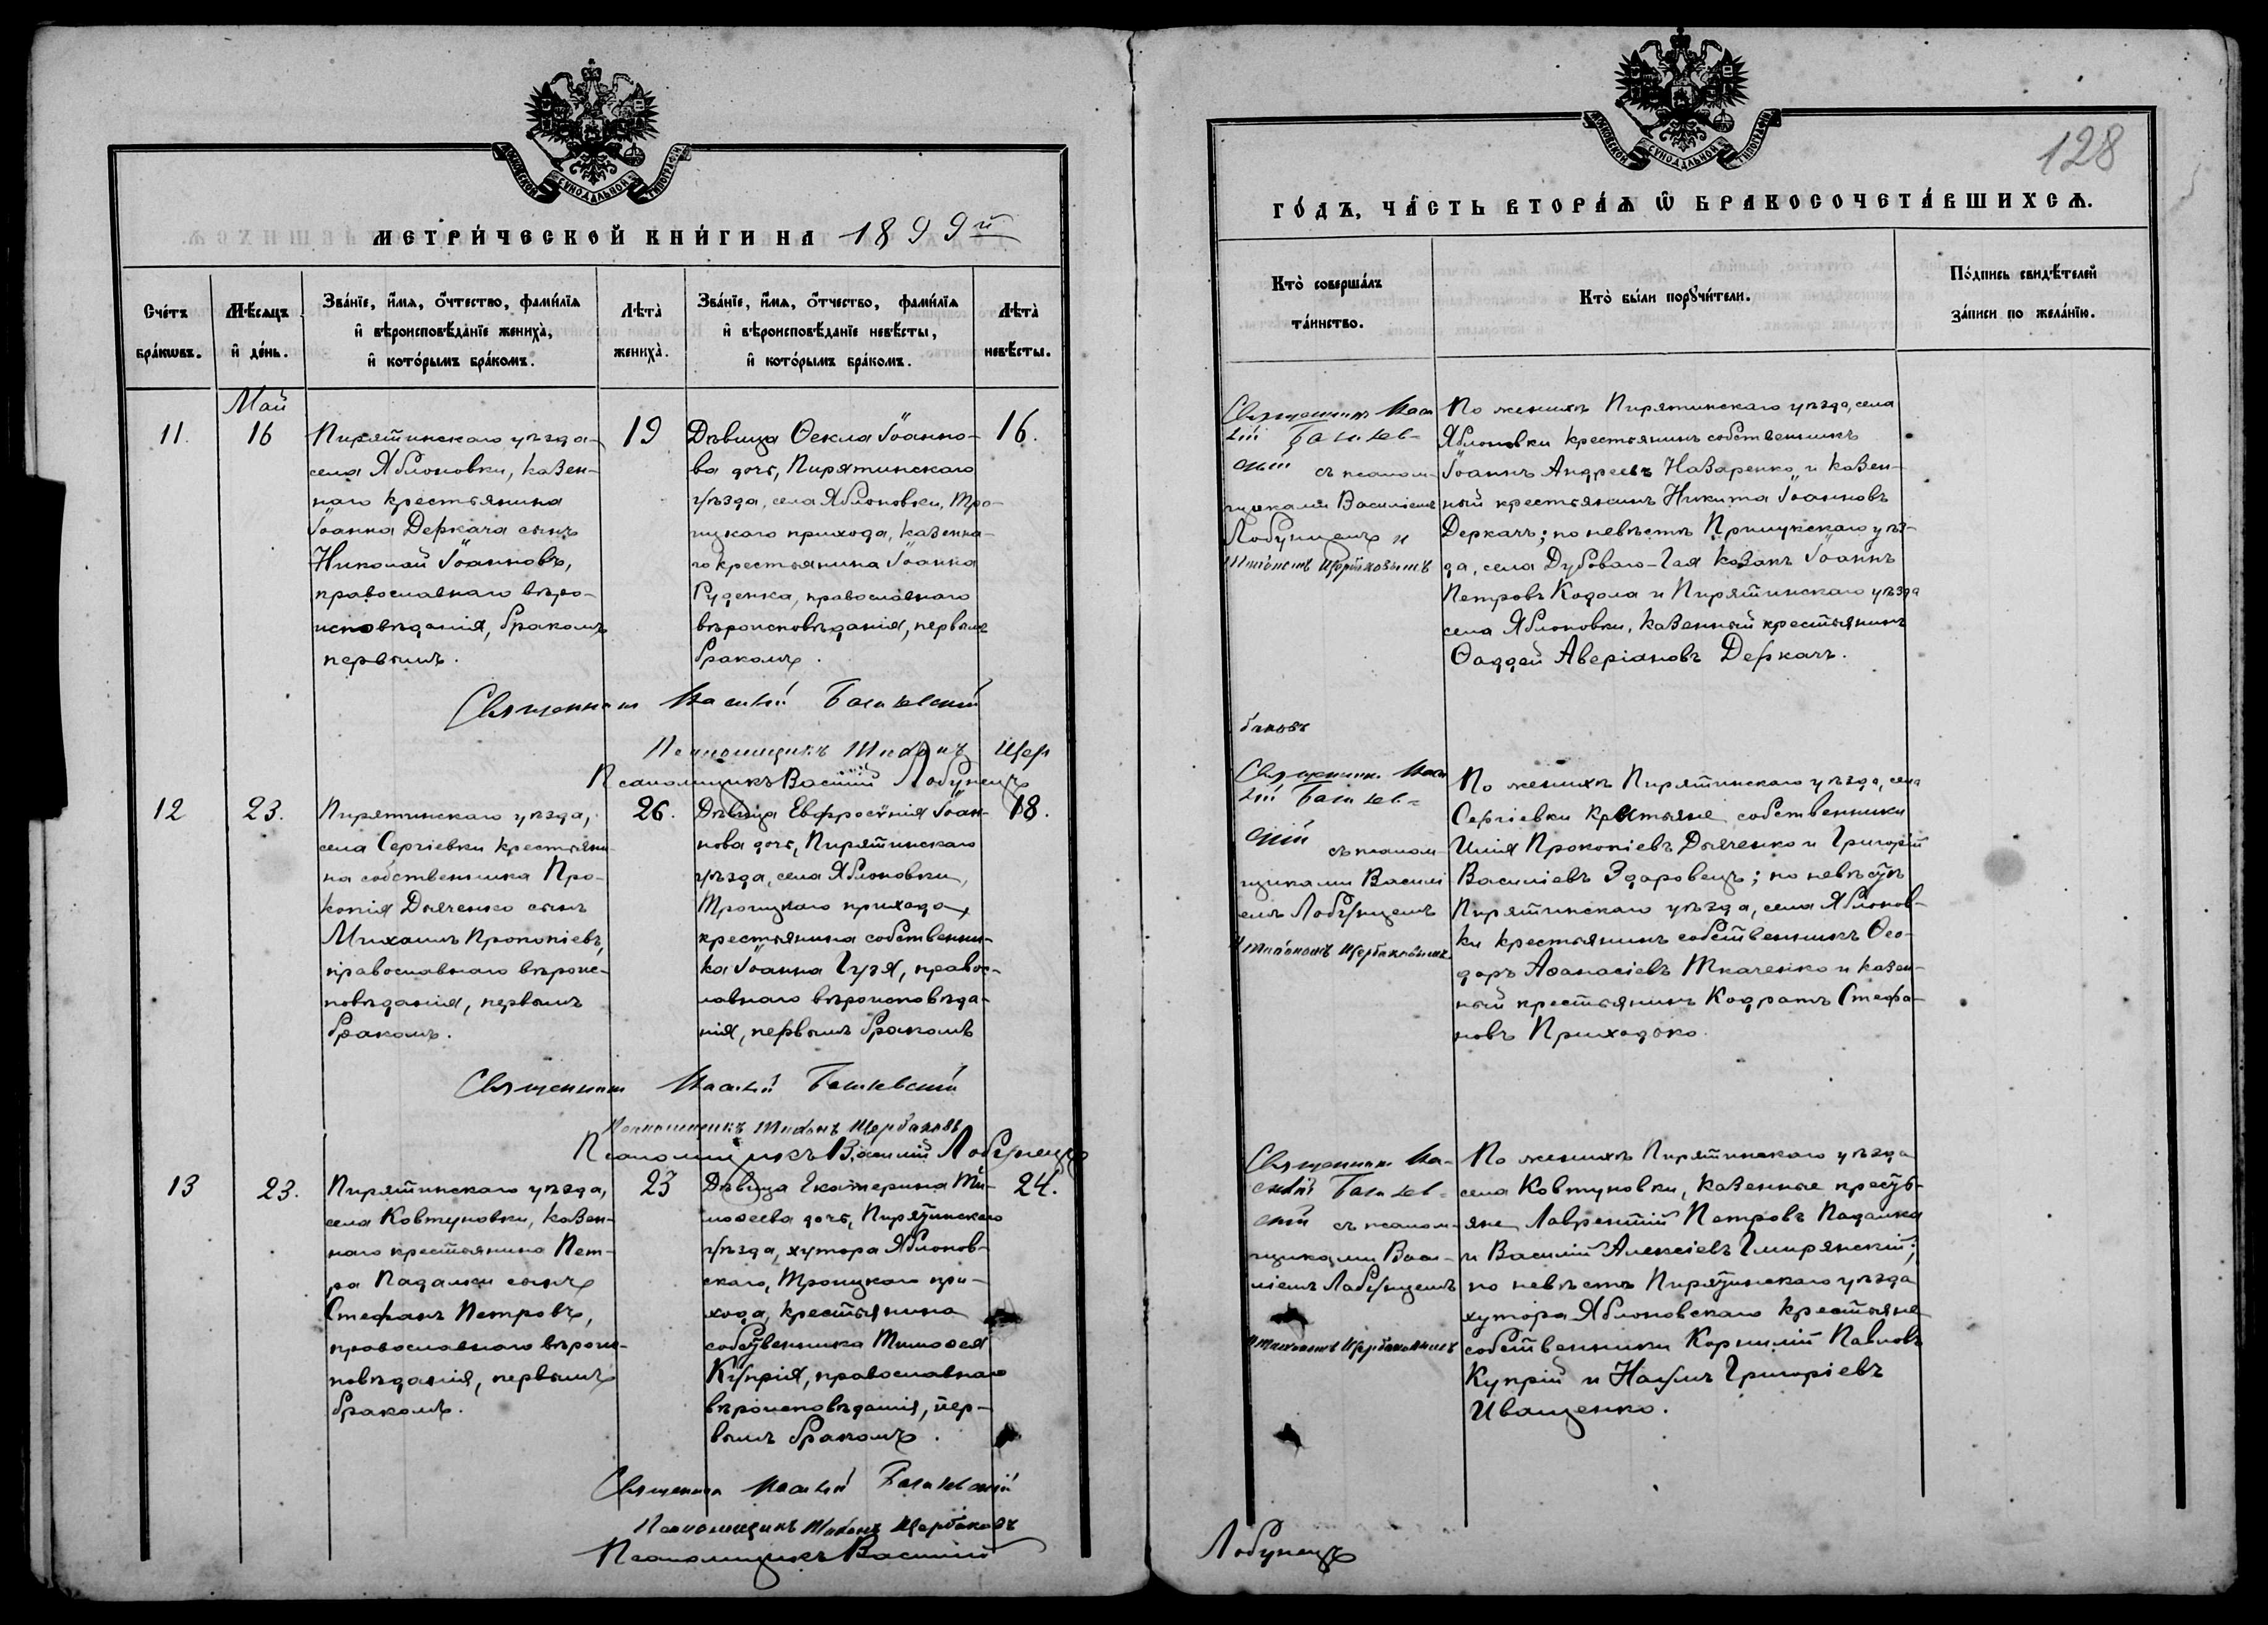 МОСКОВСКОЙ СУНОДАЛЬНОЙ ТИПОГРАФIИ
МЕТРИ́ЧЕСКОЙ КНИ́ГИ НА 1899й
Сче́тъ бра́кѡвъ.
Мѣ́сяцъ и҆ де́нь.
Зва́нїе, и҆́мя, ѻ҆́тчество, фами́лїя
и҆ вѣроисповѣ́данїе жениха̀,
и҆ кото́рымъ бра́комъ.
Лѣ́та жениха̀.
Зва́нїе, и҆́мя, ѻ҆́тчество, фами́лїя
и҆ вѣроисповѣ́данїе невѣ́сты,
и҆ кото́рымъ бра́комъ.
Лѣ́та невѣ́сты.
Май
11.
16
Пирятинскаго уѣзда
села Яблоновки, казен-
наго крестьянина
Іоанна Деркача сынъ
Николай Іоанновъ,
православнаго вѣро-
исповѣданія, бракомъ
первымъ.
19
Дѣвица Ѳекла Іоанно-
ва дочь, Пирятинскаго
уѣзда, села Яблоновки, Тро-
ицкаго прихода, казенна-
го крестьянина Іоанна
Руденка, православнаго
вѣроисповѣданія, первымъ
бракомъ.
16.
Священникъ Василій
Псаломщикъ Тихонъ Щер
Псаломщикъ Василій Лобунецъ
12
23.
Пирятинскаго уѣзда,
села Сергіевки крестьяни-
на собственника Про-
копія Дьяченко сынъ
Михаилъ Прокопіевъ,
православнаго вѣроис-
повѣданія, первымъ
бракомъ.
26.
Дѣвица Евфросинія Іоан-
нова дочь, Пирятинскаго
уѣзда, села Яблоновки,
Троицкаго прихода,
крестьянина собственни-
ка Іоанна Гузя, правос-
лавнаго вѣроисповѣда-
нія, первымъ бракомъ
18.
Священникъ Василій
Псаломщикъ Тихонъ Щербаковъ
Псаломщикъ Василій Лобунецъ
13
23.
Пирятинскаго уѣзда,
села Ковтуновки, казен-
наго крестьянина Пет-
ра Падалки сынъ
Стефанъ Петровъ,
православнаго вѣроис-
повѣданія, первымъ
бракомъ.
23
Дѣвица Екатерина Ти-
моѳеева дочь, Пирятинскаго
уѣзда, хутора Яблонов-
скаго, Троицкаго при-
хода, крестьянина
собственника Тимоѳея
Купрія, православнаго
вѣроисповѣданія, пер-
вымъ бракомъ.
24.
Священникъ Василій
Псаломщикъ Тихонъ Щербаковъ
Псаломщикъ Василій
МОСКОВСКОЙ СУНОДАЛЬНОЙ ТИПОГРАФIИ
128
ГО́ДЪ, ЧА́СТЬ ВТОРА́Я Ѿ БРАКОСОЧЕТА́ВШИХСЯ.
Кто̀ соверша́лъ
та́инство.
Кто̀ бы́ли порꙋчи́тели.
По́дпись свидѣ́телей
за́писи по жела́нїю.
Священникъ Васи
лій
скій съ псалом-
щиками Василіемъ
Лобунцемъ и
Тихономъ Щербаковымъ
По женихѣ Пирятинскаго уѣзда, села
Яблоновки крестьянинъ собственникъ
Іоаннъ Андреевъ Назаренко и казен-
ный крестьянинъ Никита Іоанновъ
Деркачъ; по невѣстѣ Прилукскаго уѣз-
да, села Дубоваго-Гая козакъ Іоаннъ
Петровъ Кодола и Пирятинскаго уѣзда
села Яблоновки, казенный крестьянинъ
Ѳаддей Аверіановъ Деркачъ.
баковъ
Священникъ Васи
лій
скій съ псалом-
щиками Василі
емъ Лобунцемъ
и Тихономъ Щербаковымъ
По женихѣ Пирятинскаго уѣзда, села
Сергіевки крестьяне собственники
Илія Прокопіевъ Дьяченко и Григорій
Василіевъ Здоровецъ; по невѣстѣ
Пирятинскаго уѣзда, села Яблонов-
ки крестьянинъ собственникъ Ѳео-
доръ Аѳанасіевъ Ткаченко и казен-
ный крестьянинъ Кодратъ Стефа-
новъ Приходько.
Священникъ Ва-
силій
скій съ псалом-
щиками Васи-
ліемъ Лобунцемъ
и Тихономъ Щербаковымъ
По женихѣ Пирятинскаго уѣзда
села Ковтуновки, казенные кресть-
яне Лаврентій Петровъ Падалка
и Василій Алексіевъ Гмирянскій;
по невѣстѣ Пирятинскаго уѣзда
хутора Яблоновскаго крестьяне
собственники Корнилій Павловъ
Купрій и Наумъ Григоріевъ
Иващенко.
Лобунецъ